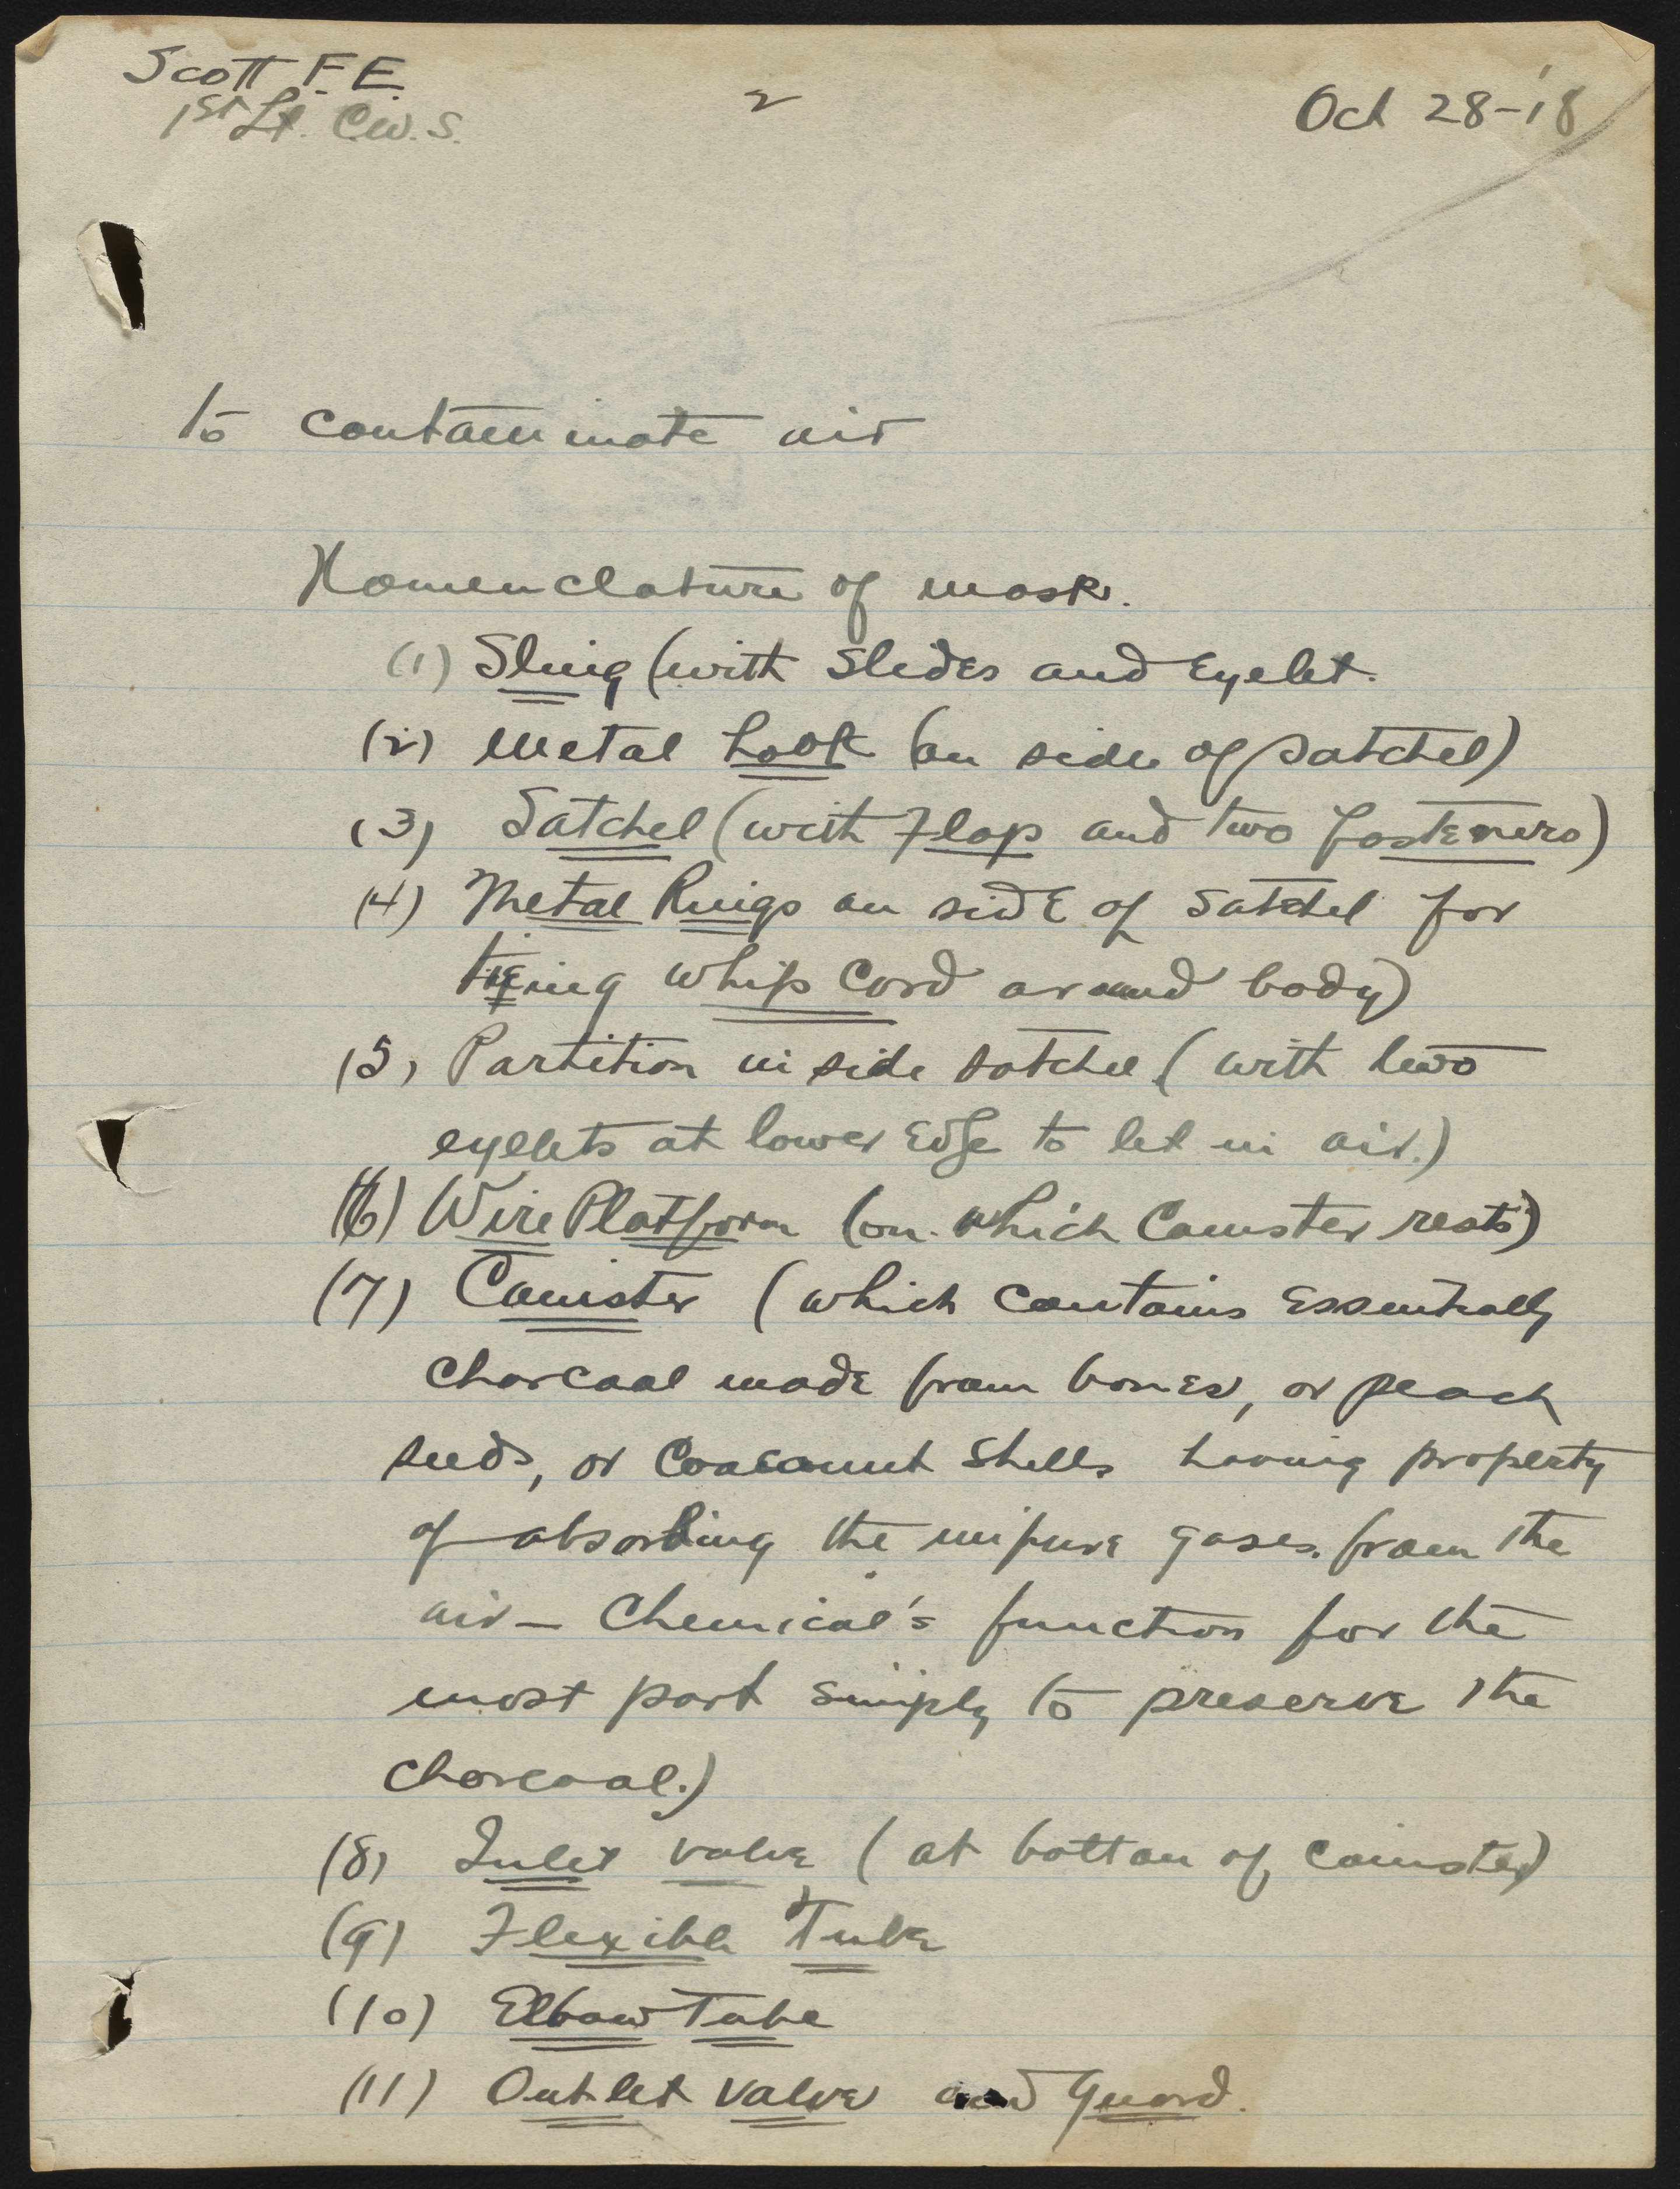 Scott F.E.
1st Lt. C.W.S.
2
Oct 28-'18
to contaminate air
Nomenclature of mask.
(1) Sling (with slides and Eyelet.
(2) Metal hook (on side of satchel)
(3) Satchel (with Flap and two fasteners)
(4) Metal Rings on side of satchel for
tieing whip cord around body)
(5) Partition inside satchel (with two
eyelets at lower Edge to let in air.)
(6) Wire Platform (on which Canister rests)
(7) Canister (which contains Essentially
charcoal made from bones, or peach
seeds, or Cocoanut shells having property
of absorbing the impure gases from the
air – Chemical's function for the
most part simply to preserve the
charcoal.)
(8) Inlet valve (at bottom of canister)
(9) Flexible Tube
(10) Elbow Tube
(11) Outlet valve and Guard.